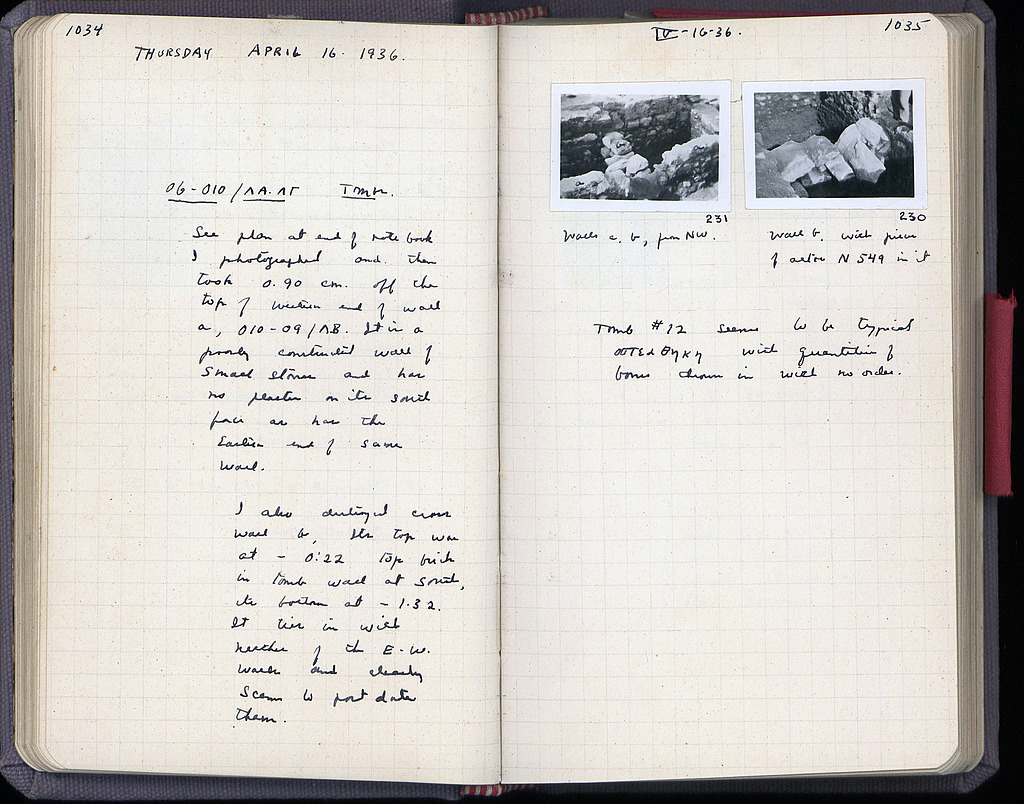 1034
THURSDAY APRIL 16. 1936.
06-010/ΛΑ.ΛΓ Tomb.
See plan at end of note book
I photographed and then
took 0.90 cm. off the
top of western end of wall
a, 010-09/ΛΒ. It is a
poorly constructed wall of
small stones and has
no plaster on its south
face as has the
Eastern end of same
wall.
I also destroyed cross
wall b, Its top was
at - 0:22 top brick
in tomb wall at south,
its bottom at - 1.32.
It ties in with
neither of the E-W.
walls and clearly
seems to post date
them.
1035
IV-16-36.
231
230
Walls a, b, from NW.
Wall b, with piece
of N 549 in it
Tomb #12 seems to be typical
οστεοθήκη with quantities of
bones thrown in with no order.